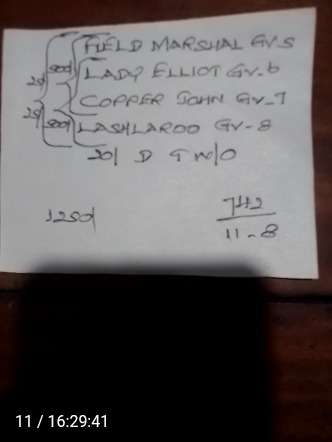 FIELD MARSHAL GV-5
LADY ELLIOT GV-6
COPPER JOHN GV-7
LASHLAROO GV-8
20/ D T W/O
1250/
742
11-8
11 / 16:29:41